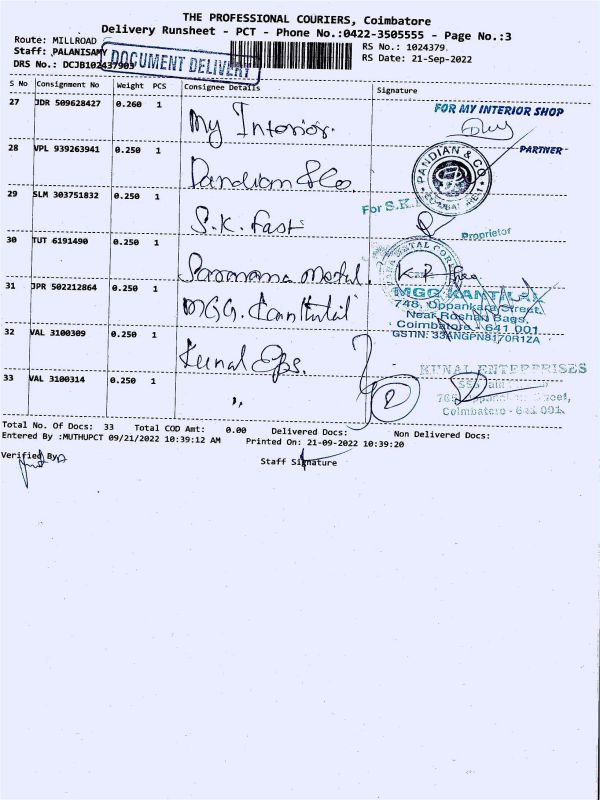 THE PROFESSIONAL COURIERS, Coimbatore
Delivery Runsheet - PCT - Phone No.:0422-3505555 - Page No.:3
Route: MILLROAD
RS No.: 1024379
Staff: PALANISAMY
RS Date: 21-Sep-2022
DRS No.: DCJB102437903
DOCUMENT DELIVERY
S No Consignment No Weight PCS Consignee Details Signature
27 JDR 509628427 0.260 1 My Interior.
FOR MY INTERIOR SHOP
PARTNER
28 VPL 939263941 0.250 1 Pandian & Co.
PANDIAN & CO
29 SLM 303751832 0.250 1 S.K. Fast
For S.K.
Proprietor
30 TUT 6191490 0.250 1 Metal
METAL COR
31 JPR 502212864 0.250 1 MGG. Kanthilal
MGG KANTILAL
748, Oppankara Street,
Near Roshan Bags,
Coimbatore - 641 001
GSTIN: 33ANGPN8170R1ZA
32 VAL 3100309 0.250 1 Kunal Eps.
KUNAL ENTERPRISES
33 VAL 3100314 0.250 1 ,,
2
Street,
Coimbatore - 641 001.
Total No. Of Docs: 33 Total COD Amt: 0.00 Delivered Docs: Non Delivered Docs:
Entered By :MUTHUPCT 09/21/2022 10:39:12 AM Printed On: 21-09-2022 10:39:20
Verified By
Staff Signature